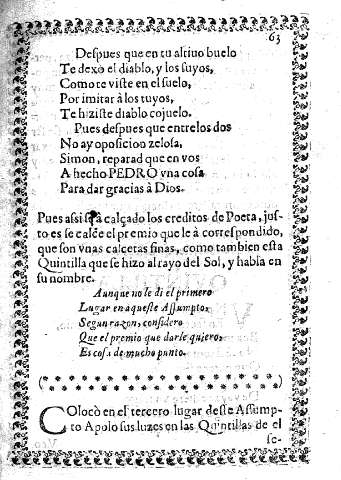 63
Despues que en tu altiuo buelo
Te dexo el diablo, y los suyos,
Como te viste en el suelo,
Por imitar à los tuyos,
Te hiziste diablo cojuelo.
Pues despues que entre los dos
No ay oposicion zelosa,
Simon, reparad que en vos
A hecho PEDRO vna cosa
Para dar gracias à Dios.
Pues assi se à calçado los creditos de Poeta, jus-
to es se calce el premio que le à correspondido,
que son vnas calcetas finas, como tambien esta
Quintilla que se hizo al rayo del Sol, y habla en
su nombre.
Aunque no le di el primero
Lugar en aqueste Assumpto,
Segun razon, considero
Que el premio que darle quiero,
Es cosa de mucho punto.
Colocò en el tercero lugar deste Assump-
to Apolo sus luzes en las Quintillas de el
se-